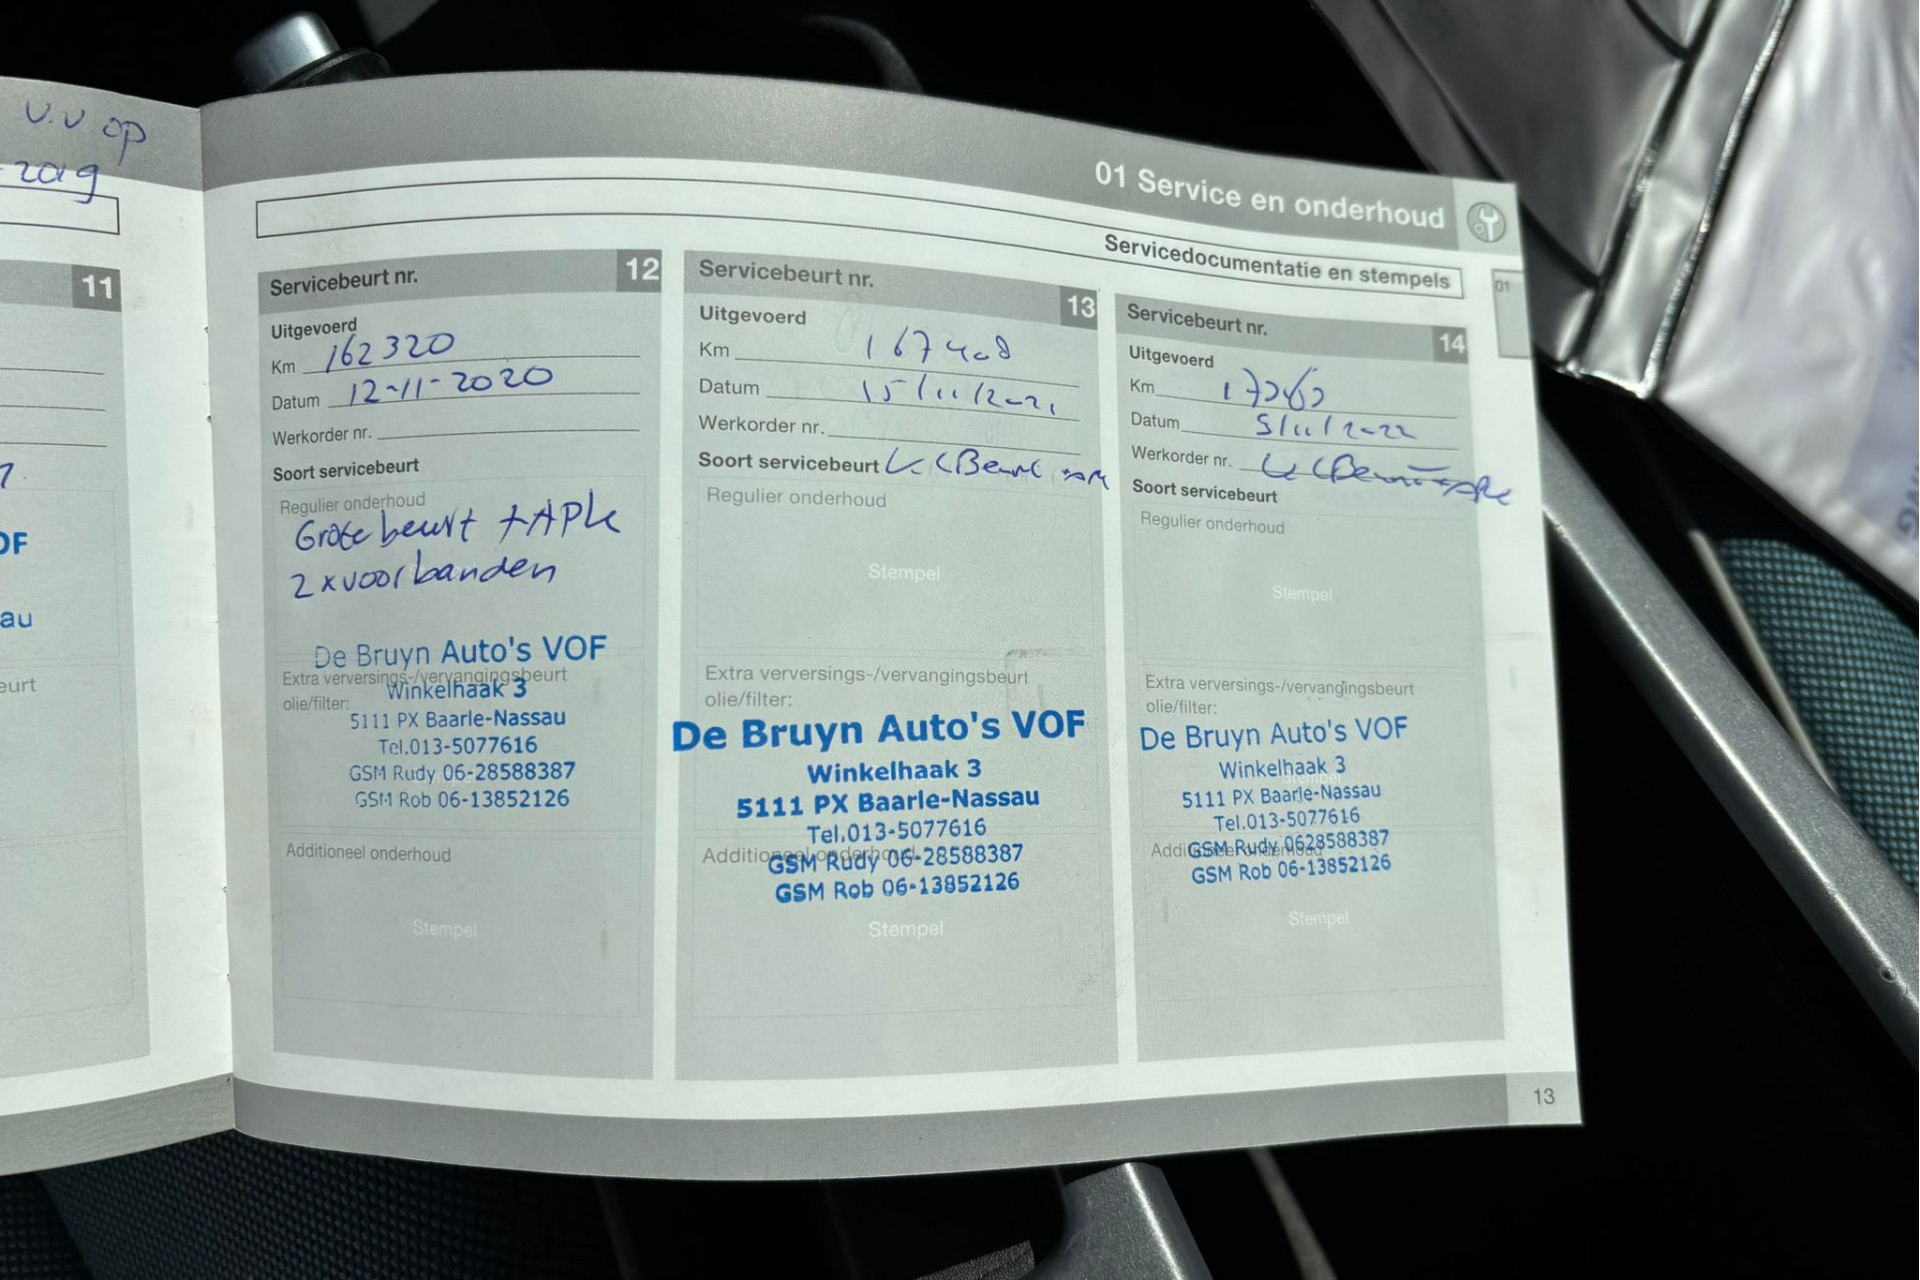 v.v op
01 Service en onderhoud
Servicedocumentatie en stempels
01
11
OF
au
eurt
Servicebeurt nr. 12
Uitgevoerd
Km 162320
Datum 12-11-2020
Werkorder nr.
Soort servicebeurt
Regulier onderhoud
Grote beurt + APK
2 x voorbanden
De Bruyn Auto's VOF
Extra verversings-/vervangingsbeurt
Winkelhaak 3
olie/filter:
5111 PX Baarle-Nassau
Tel.013-5077616
GSM Rudy 06-28588387
GSM Rob 06-13852126
Additioneel onderhoud
Stempel
Servicebeurt nr. 13
Uitgevoerd
Km 167408
Datum 15/11/2021
Werkorder nr.
Soort servicebeurt
Regulier onderhoud
Stempel
Extra verversings-/vervangingsbeurt
olie/filter:
De Bruyn Auto's VOF
Winkelhaak 3
5111 PX Baarle-Nassau
Tel.013-5077616
Additioneel onderhoud
GSM Rudy 06-28588387
GSM Rob 06-13852126
Stempel
Servicebeurt nr. 14
Uitgevoerd
Km
Datum 5/11/2022
Werkorder nr.
Soort servicebeurt
Regulier onderhoud
Stempel
Extra verversings-/vervangingsbeurt
olie/filter:
De Bruyn Auto's VOF
Winkelhaak 3
Stempel
5111 PX Baarle-Nassau
Tel.013-5077616
GSM Rudy 0628588387
Additioneel onderhoud
GSM Rob 06-13852126
Stempel
13